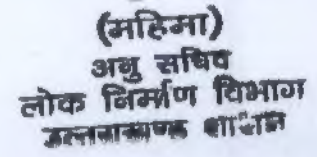 (महिमा)
अनु सचिव
लोक निर्माण विभाग
उत्तराखण्ड शासन